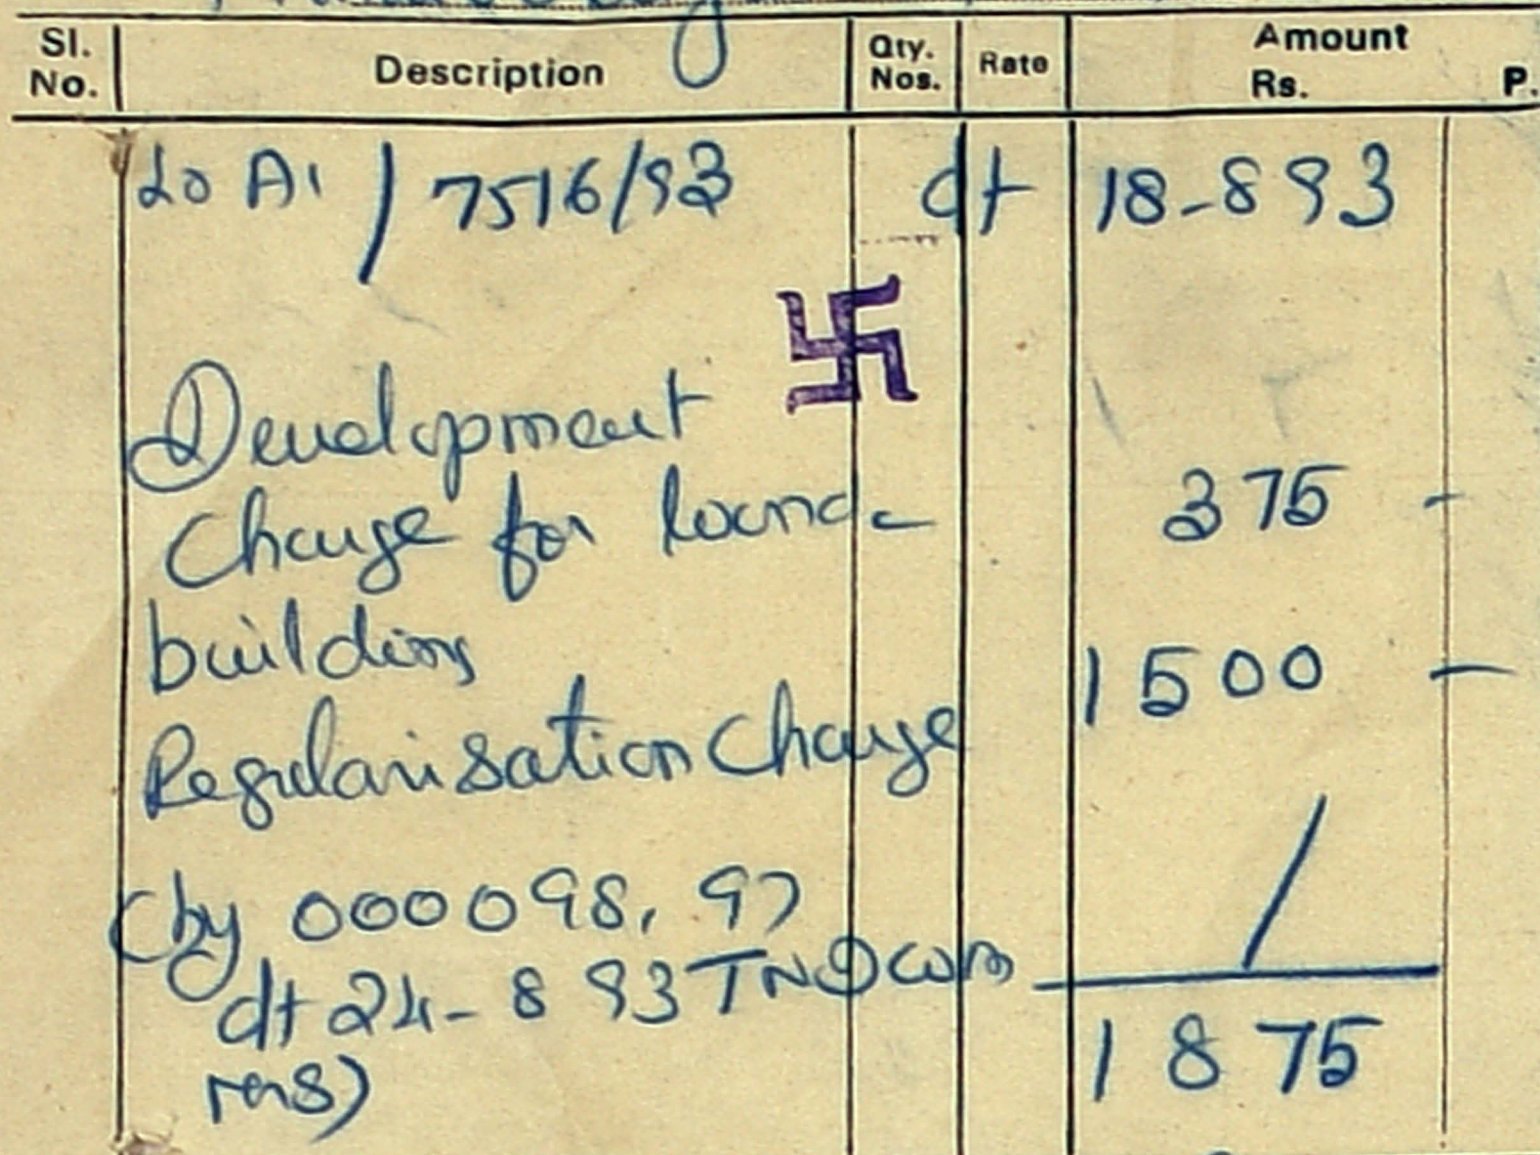 Sl. No. Description Qty. Nos. Rate Amount Rs. P.
Lo A1 / 7516/93 dt 18-8 93
Development
Charge for 375 -
building 1500 -
Regularisation Charge
(by 000098, 97
dt 24-8 93
1875